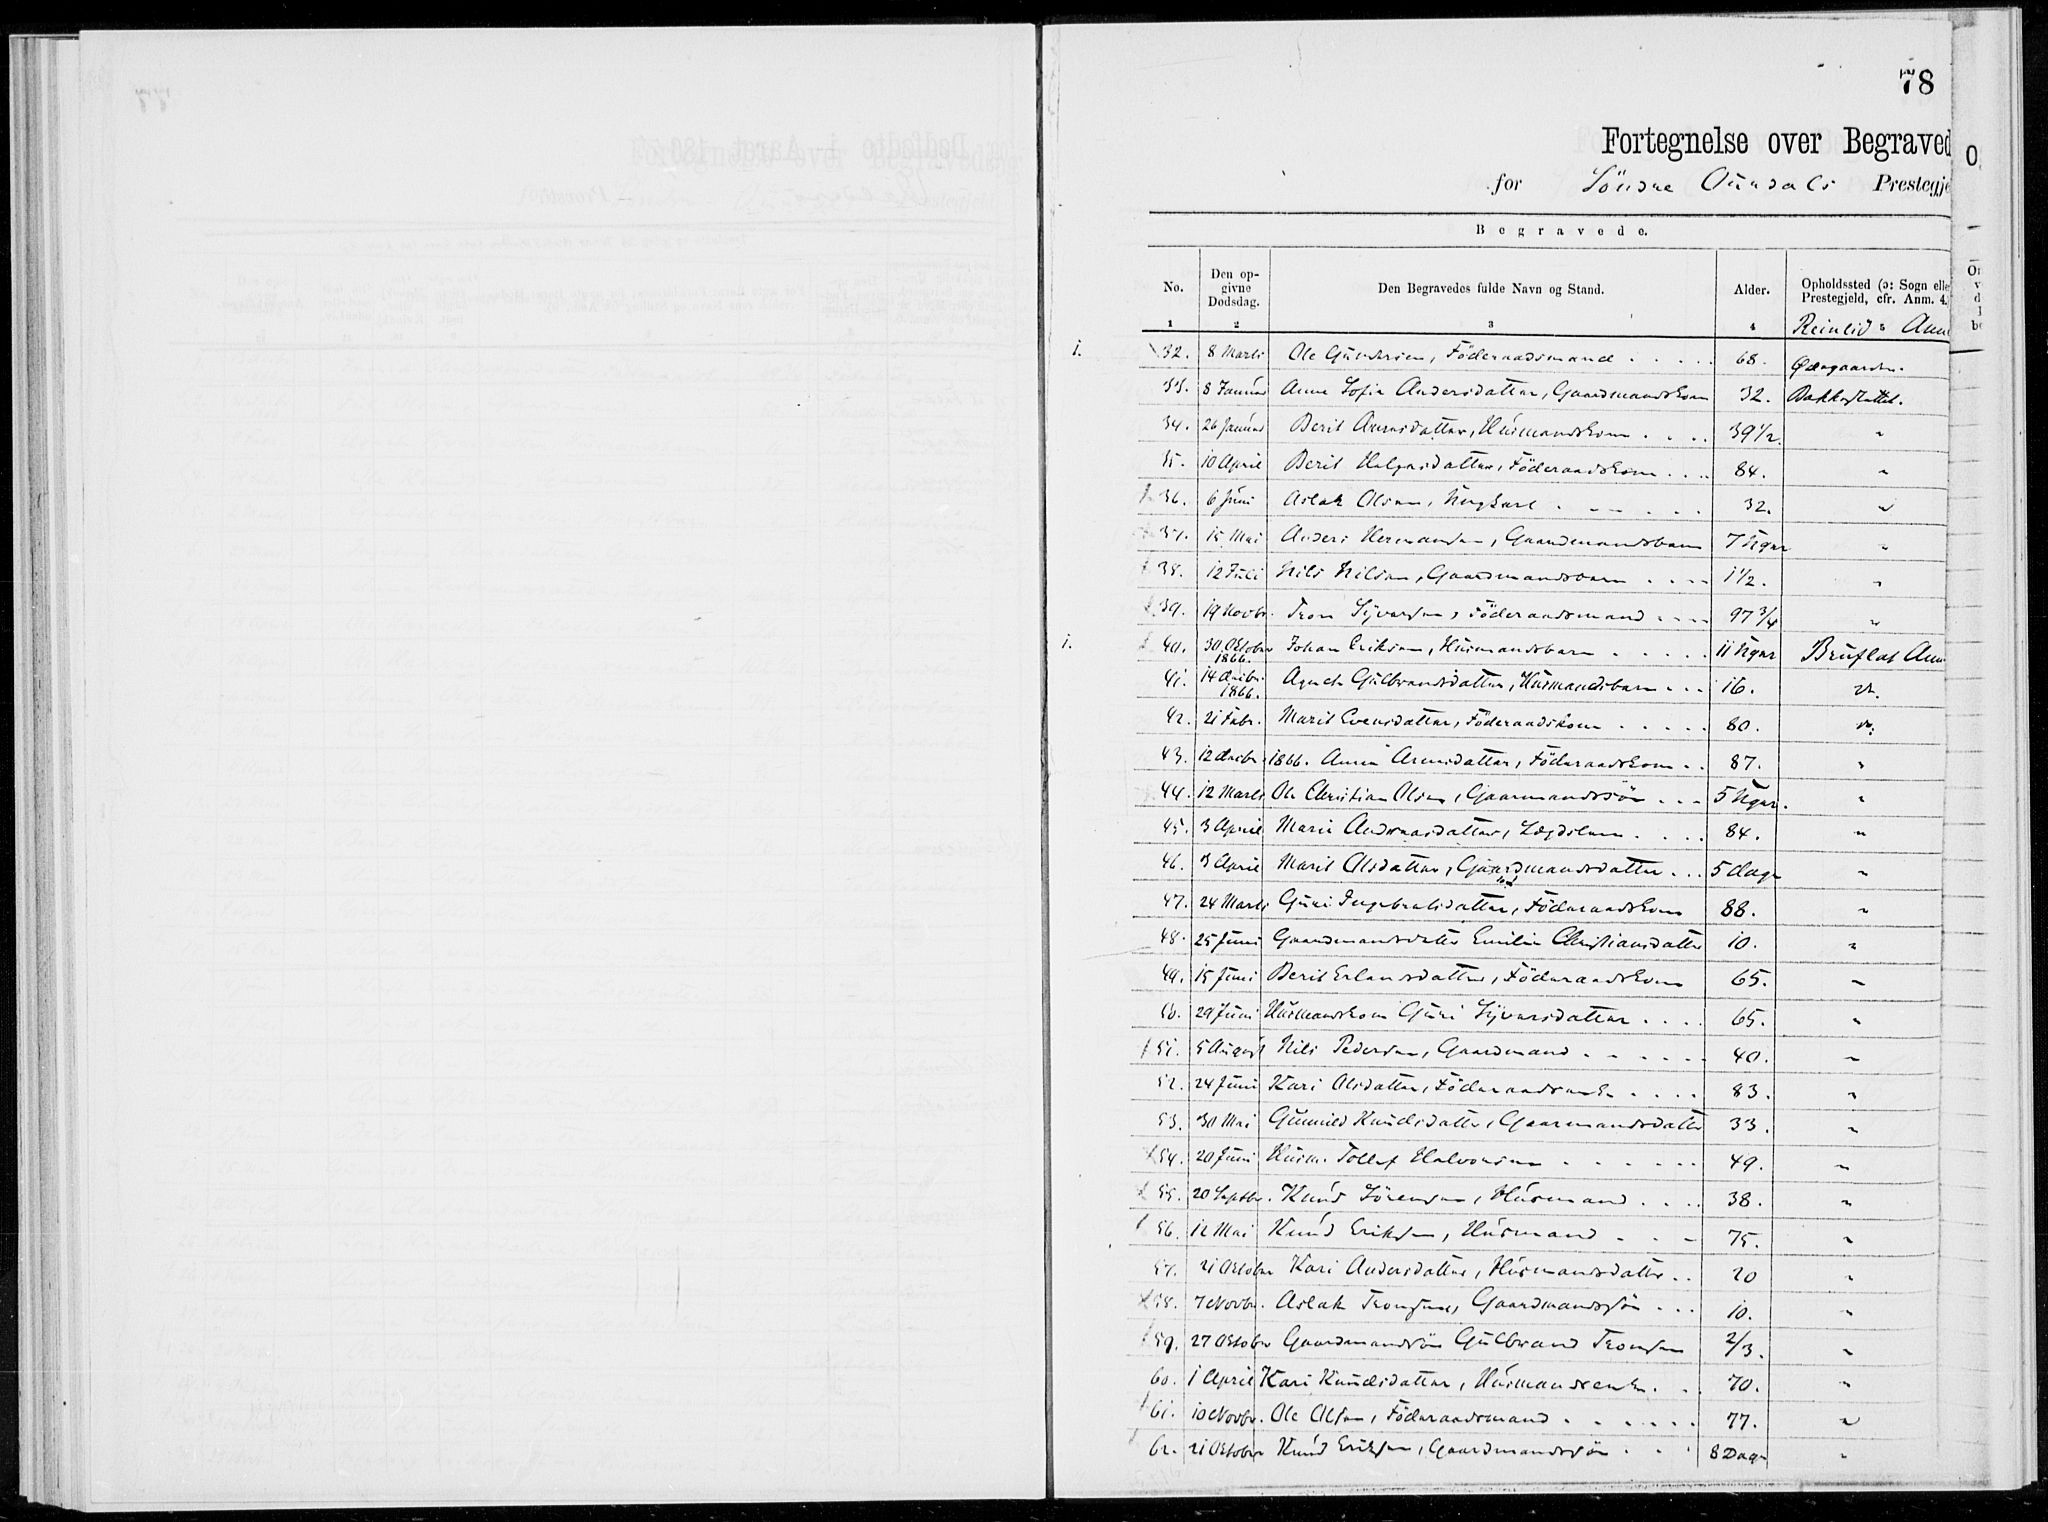 78
Fortegnelse over Begraved
for Söndre Aurdals Prestegje
Begravede.
No. Den opgivne Dødsdag. Den Begravedes fulde Navn og Stand. Alder. Opholdssted (ɔ: Sogn elle Prestegjeld, cfr. Anm. 4.
1 2 3 4 5
Reinlid Ann
1. 32. 8 Marts Ole Gundersen, Föderaadsmand 68. Ödegaarden.
33. 8 Januar Anne Sofie Andersdatter, Gaardmandskone 32. Bakkestellet.
34. 26 Januar Berit Arnesdatter, Husmandskone 39 1/2 "
35. 10 April Berit Helgesdatter, Föderaadskone 84. "
36. 6 Juni Aslak Olsen, Ungkarl 32. "
37. 15 Mai Anders Hermansen, Gaardmandsbarn 7 Uger "
38. 12 Juli Nils Nilsen, Gaardmandsbarn 1 1/2. "
39. 19 Novbr. Tron Syversen, Föderaadsmand 97 3/4 "
1. 40. 30 Oktober 1866. Johan Eriksen, Husmandsbarn 11 Uger Bruflat Ann
41. 14 Decbr. 1866. Agneth Gulbrandsdatter, Husmandsbarn 16. "
42. 21 Febr. Marit Evensdatter, Föderaadskone 80. "
43. 12 Decbr. 1866. Anne Arnesdatter, Föderaadskone 87. "
44. 12 Marts Ole Christian Olsen, Gaarmandssön 5 Uger. "
45. 3 April Marie Andreasdatter, Lægdslem 84. "
46. 3 April Marit Olsdatter, Gaardmandsdatter 5 dage "
47. 24 Marts Guri Ingebretsdatter, Föderaadskone 88. "
48. 25 Juni Gaardmandsdatter Emilie Christiansdatter 10. "
49. 15 Juni Berit Erlandsdatter, Föderaadskone 65. "
50. 29 Juni Husmandskone Guri Syversdatter 65. "
51. 5 August Nils Pedersen, Gaardmand 40. "
52. 24 Juni Kari Olsdatter, Föderaadsenke 83. "
53. 30 Mai Gunnild Knudsdatter, Gaarmandsdatter 33. "
54. 20 Juni Husm. Tollef Halvorsen 49. "
55. 20 Septbr. Knud Sörensen, Husmand 38. "
56. 12 Mai Knud Eriksen, Husmand 75. "
57. 21 Oktober Kari Andersdatter, Husmandsdatter 20 "
58. 7 Novbr. Aslak Tronsen, Gaardmandssön 10. "
59. 27 Oktober Gaardmandssön Gulbrand Tronsen 2/3. "
60. 1 April Kari Knudsdatter, Husmandsenke 70. "
61. 10 Novbr. Ole Olsen, Föderaadsmand 77. "
62. 21 Oktober Knud Eriksen, Gaardmandssön 8 Dage "